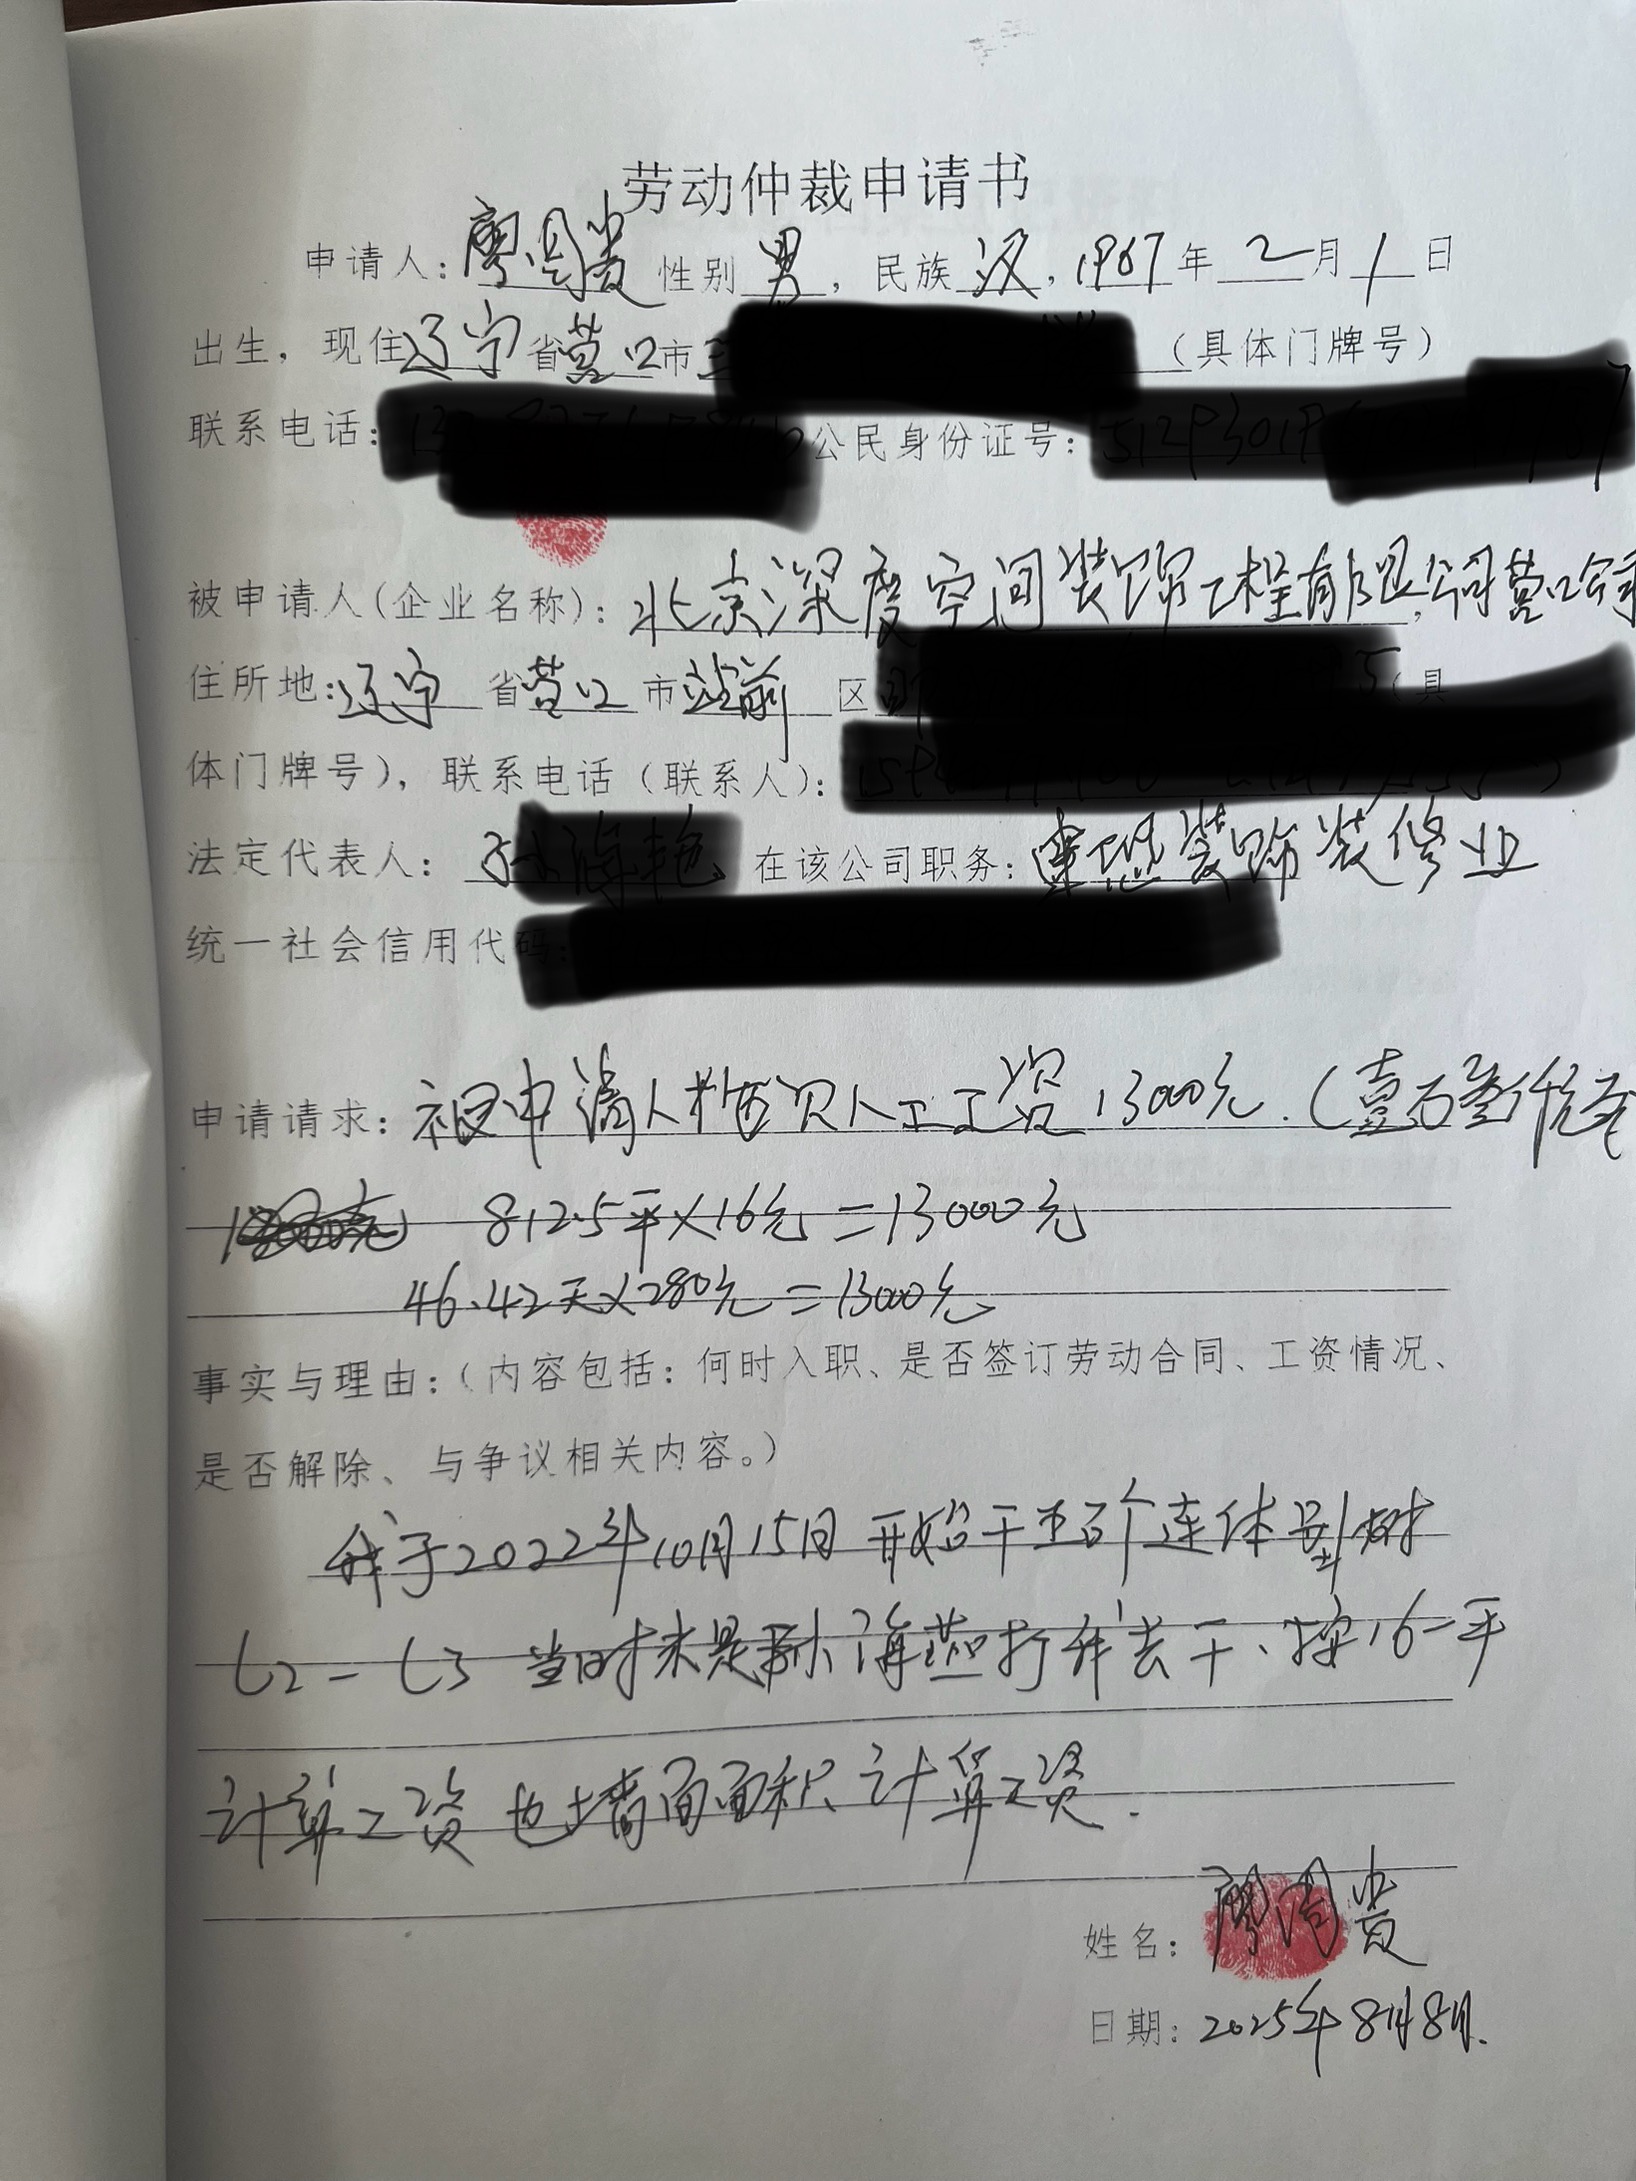 劳动仲裁申请书
申请人：廖周贵 性别 男，民族 汉，1967年 2月 1日
出生，现住辽宁省营口市（具体门牌号）
联系电话：公民身份证号：
被申请人（企业名称）：北京深度空间装饰工程有限公司营口分司
住所地：辽宁 省营口 市站前 区（具
体门牌号），联系电话（联系人）：
法定代表人： 在该公司职务：装饰装修业
统一社会信用代码：
申请请求：被申请人拖欠人工工资13000元.（壹万叁仟元
812.5平×16元=13000元
46.42天×280元=13000元
事实与理由：（内容包括：何时入职、是否签订劳动合同、工资情况、
是否解除、与争议相关内容。）
我于2022年10月15日 开始干 个连体别墅
当时 是 海燕 我去干、按16一平
计算工资 也 墙面面积计算工资.
姓名：廖周贵
日期：2025年8月8日.